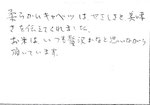 柔らかいキャベツは やさしさと美味し
さを伝えてくれました。
お米は いつも贅沢だなと思いながら
頂いています。